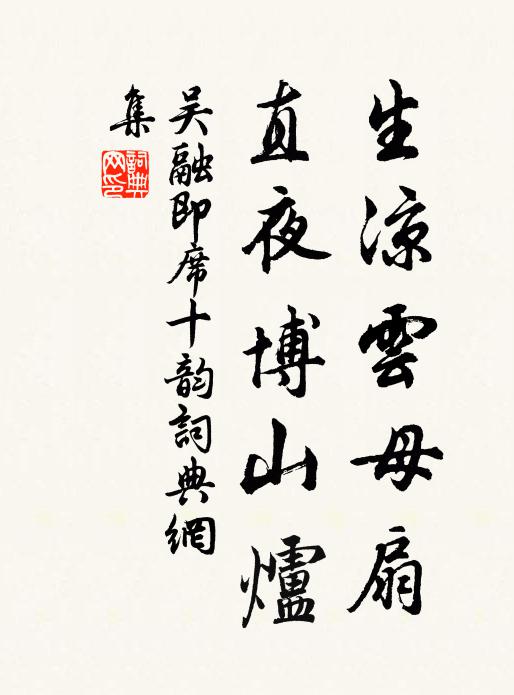 生涼雲母扇
直夜博山爐
吳融即席十韵詞典網
集
詞典
网印